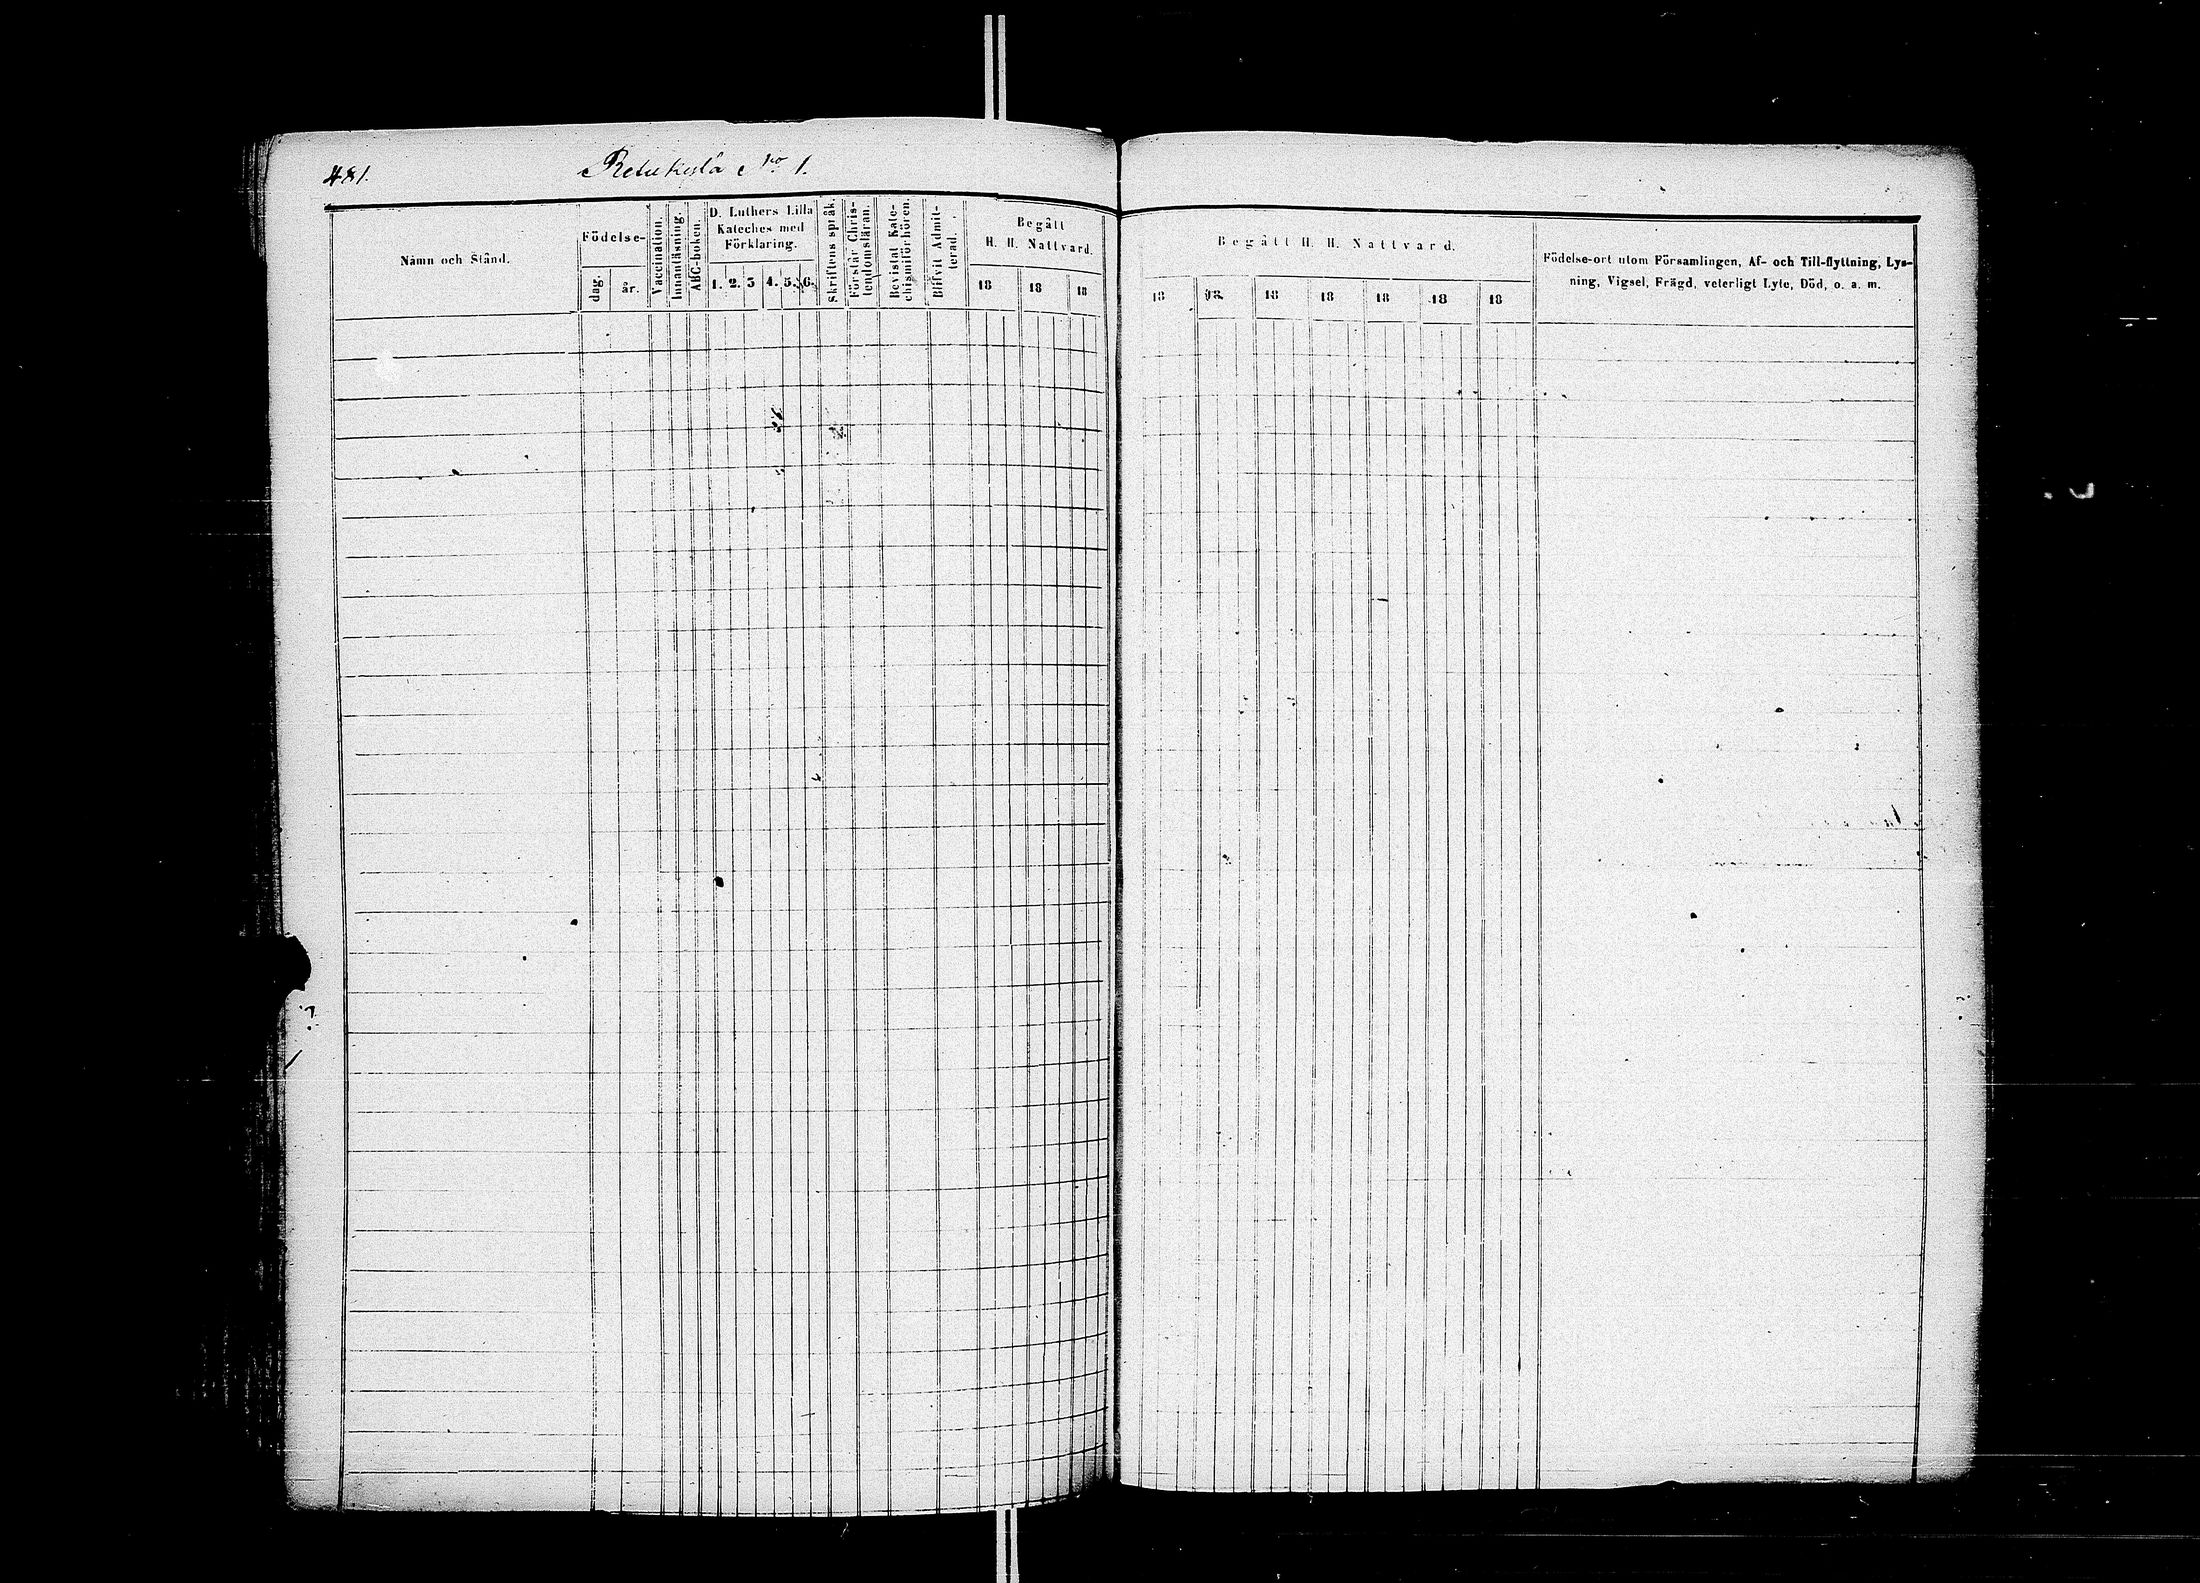 481.
Retukylä No 1.
Nämn och Stånd.
Födelse-
dag.
år.
Vaccination.
Innanläsning.
ABC-boken.
D. Luthers Lilla
Kateches med
Förklaring.
1. 2. 3 4. 5. 6.
Skriftens språk.
Förstår Chris-
tendomsläran.
Bevistat Kate-
chismiförhören.
Blifvit Admit-
terad.
Begått
H. H. Nattvard.
18 18 18
Begått H. H. Nattvard.
18 18 18 18 18 18 18
Födelse-ort utom Församlingen, Af- och Till-flyttning, Lys-
ning, Vigsel, Frägd, veterligt Lyte, Död, o. a. m.